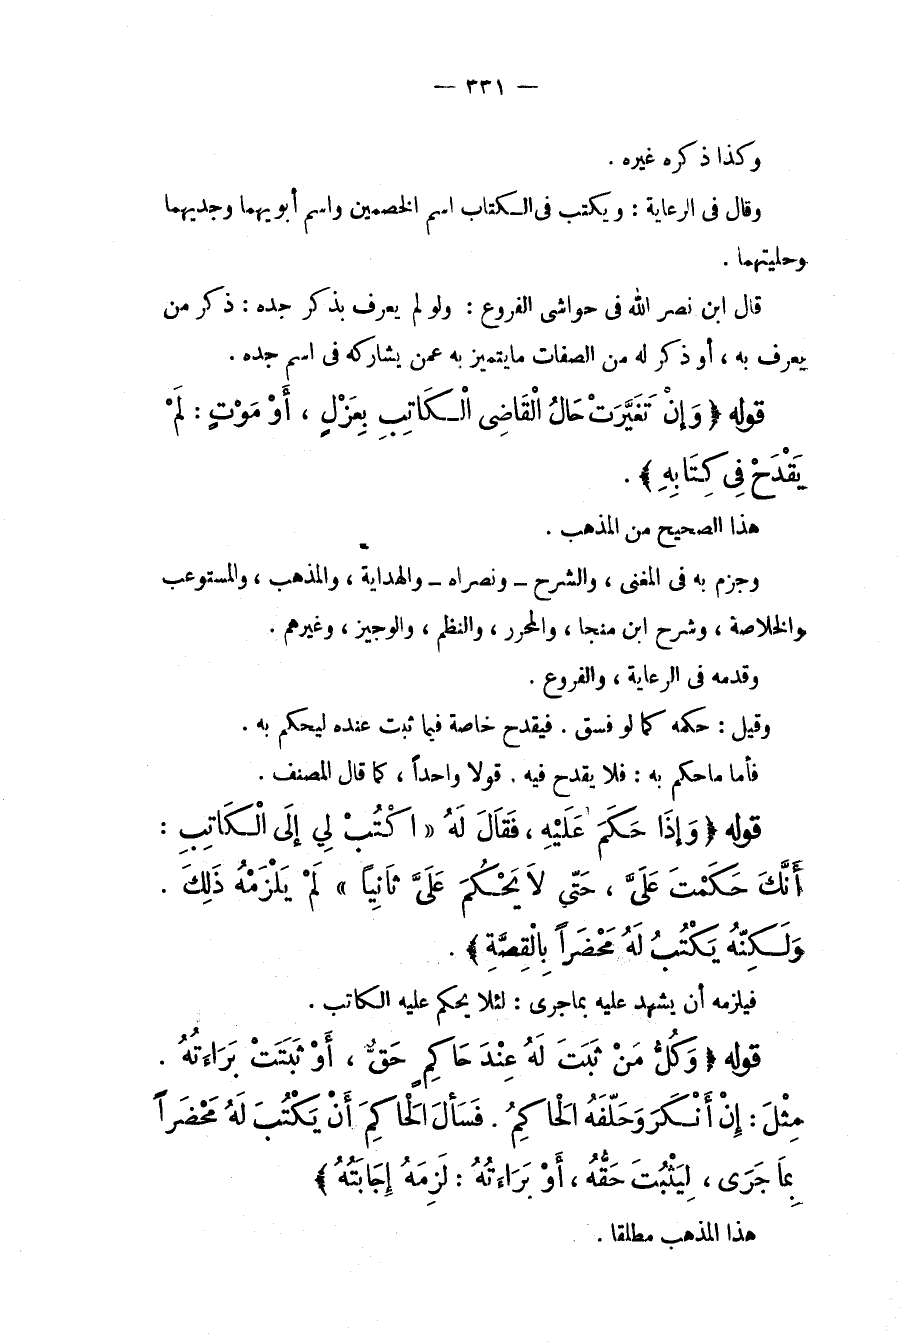 — ٣٣١ —
وكذا ذكره غيره .
وقال فى الرعاية : ويكتب فى الكتاب اسم الخصمين واسم أبويهما وجديهما
وحليتهما .
قال ابن نصر الله فى حواشى الفروع : ولو لم يعرف بذكر جده : ذكر من
يعرف به ، أو ذكر له من الصفات مايتميز به عمن يشاركه فى اسم جده .
قوله ﴿ وَإِنْ تَغَيَّرَتْ حَالُ الْقَاضِى الْكَاتِبِ بِعَزْلٍ ، أَوْ مَوْتٍ : لَمْ
يَقْدَحْ فِى كِتَابِهِ ﴾ .
هذا الصحيح من المذهب .
وجزم به فى المغنى ، والشرح ــ ونصراه ــ والهداية ، والمذهب ، والمستوعب
والخلاصة ، وشرح ابن منجا ، والمحرر ، والنظم ، والوجيز ، وغيرهم .
وقدمه فى الرعاية ، والفروع .
وقيل : حكمه كما لو فسق . فيقدح خاصة فيما ثبت عنده ليحكم به .
فأما ماحكم به : فلا يقدح فيه . قولا واحداً ، كما قال المصنف .
قوله ﴿ وَإِذَا حَكَمَ عَلَيْهِ ، فَقَالَ لَهُ « اكْتُبْ لِي إِلَى الْكَاتِبِ :
أَنَّكَ حَكَمْتَ عَلَىَّ ، حَتّي لاَ يَحْكُمَ عَلَىَّ ثَانِياً » لَمْ يَلْزَمْهُ ذَلِكَ .
وَلَكِنّهُ يَكْتُبُ لَهُ مَحْضَراً بِالْقِصَّةِ ﴾ .
فيلزمه أن يشهد عليه بماجرى : لئلا يحكم عليه الكاتب .
قوله ﴿ وَكُلُّ مَنْ ثَبَتَ لَهُ عِنْدَ حَاكِمٍ حَقٌّ ، أَوْ ثَبَتَتْ بَرَاءَتُهُ .
مِثْلَ : إِنْ أَنْكَرَ وَحَلّفَهُ الْحَاكِمُ . فَسَأَلَ الْحَاكِمَ أَنْ يَكْتُبَ لَهُ مَحْضَراً
بِمَا جَرَى ، لِيَثْبُتَ حَقُّهُ ، أَوْ بَرَاءَتُهُ : لَزِمَهُ إِجَابَتُهُ ﴾
هذا المذهب مطلقا .